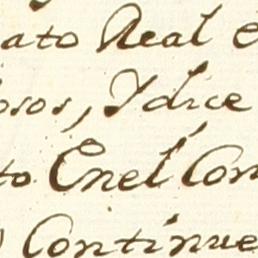 ato Real
osos, Ydice
to Enel Con
Continue